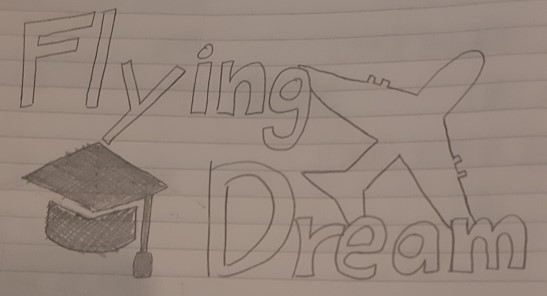 Flying
Dream